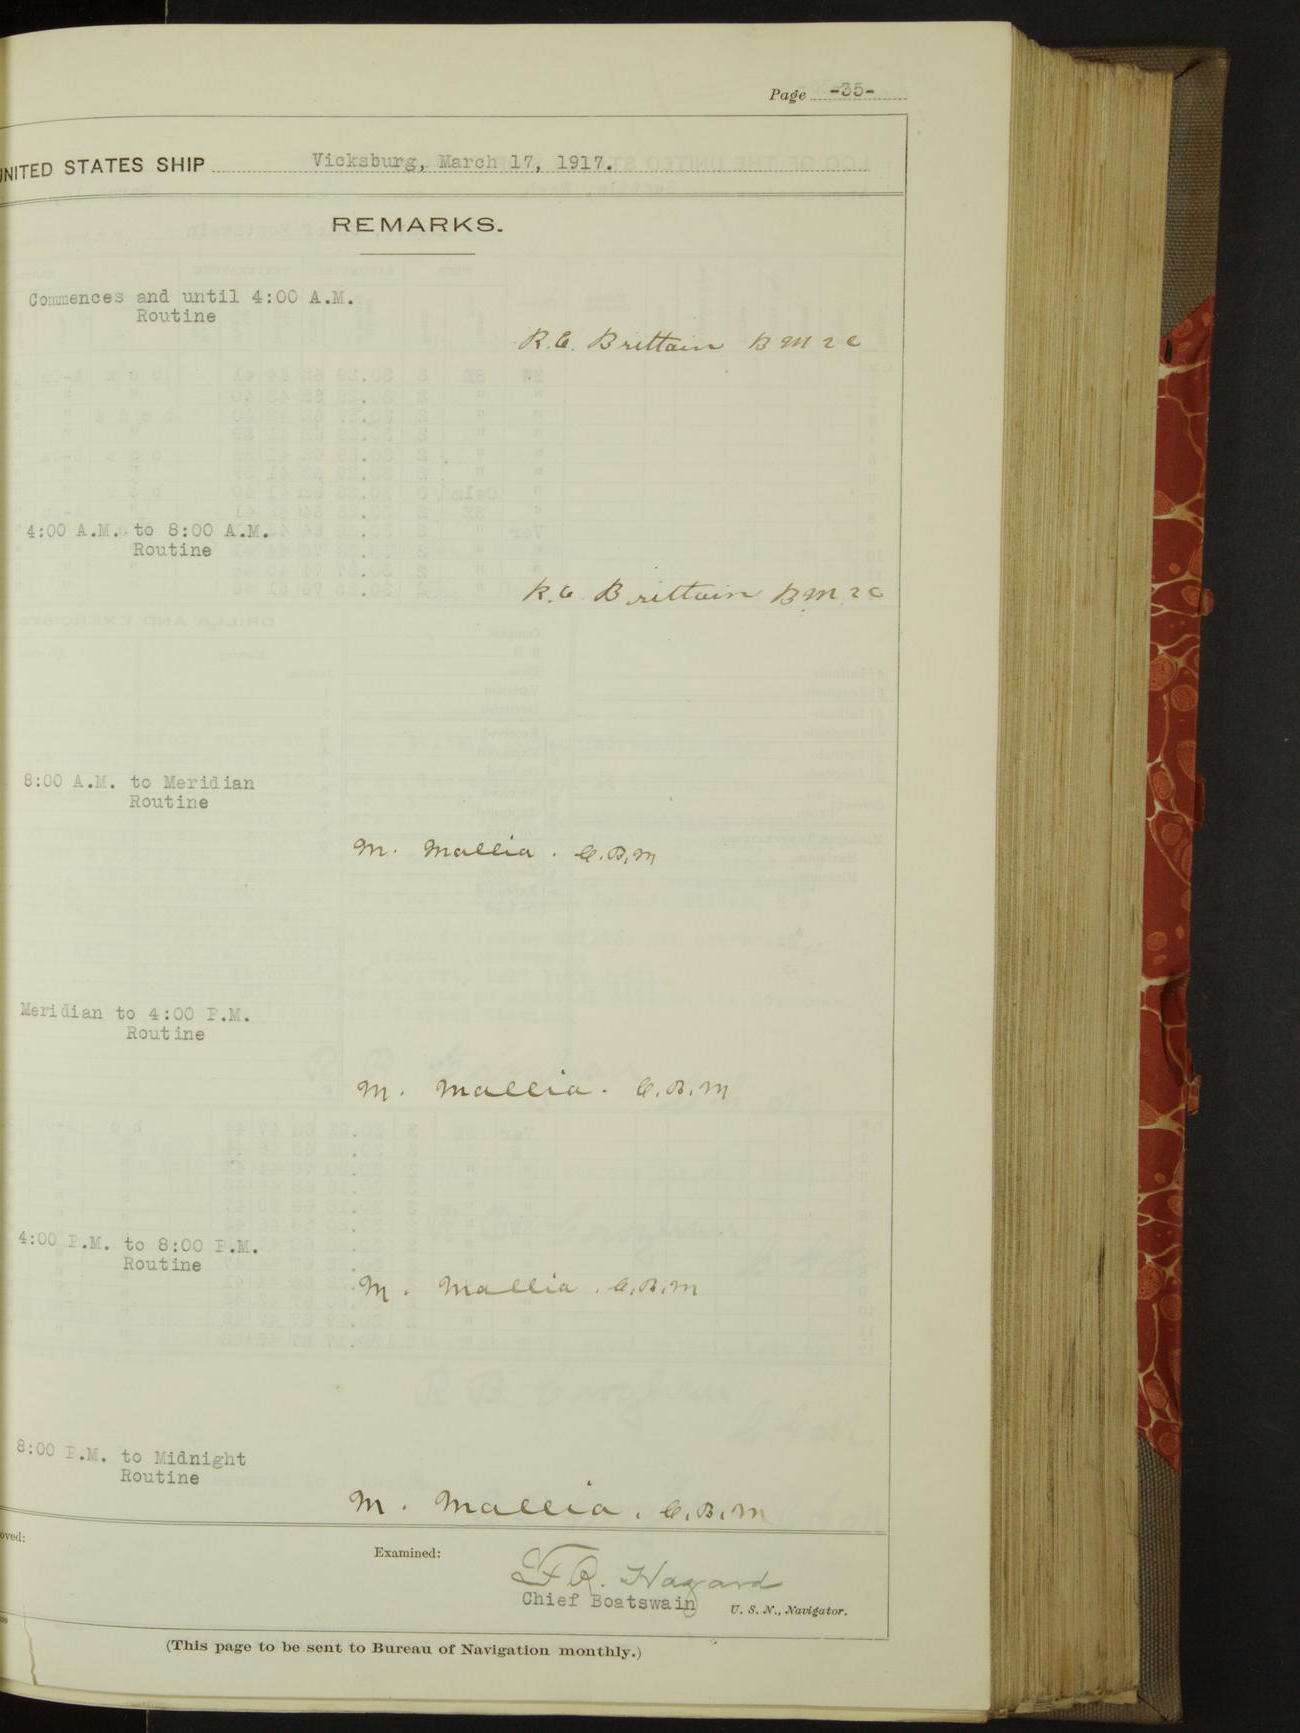 Page -35-
UNITED STATES SHIP Vicksburg, March 17, 1917.
REMARKS.
Commences and until 4:00 A.M.
Routine
R.C. Brittain BM2C
4:00 A.M. to 8:00 A.M.
Routine
R.C. Brittain BM2C
8:00 A.M. to Meridian
Routine
M. Mallia. C.B.M
Meridian to 4:00 P.M.
Routine
M. Mallia. C.B.M
4:00 P.M. to 8:00 P.M.
Routine
M. Mallia. C.B.M
8:00 P.M. to Midnight
Routine
M. Mallia. C.B.M
oved:
Examined:
F.R. Hazard
Chief Boatswain U. S. N., Navigator.
(This page to be sent to Bureau of Navigation monthly.)